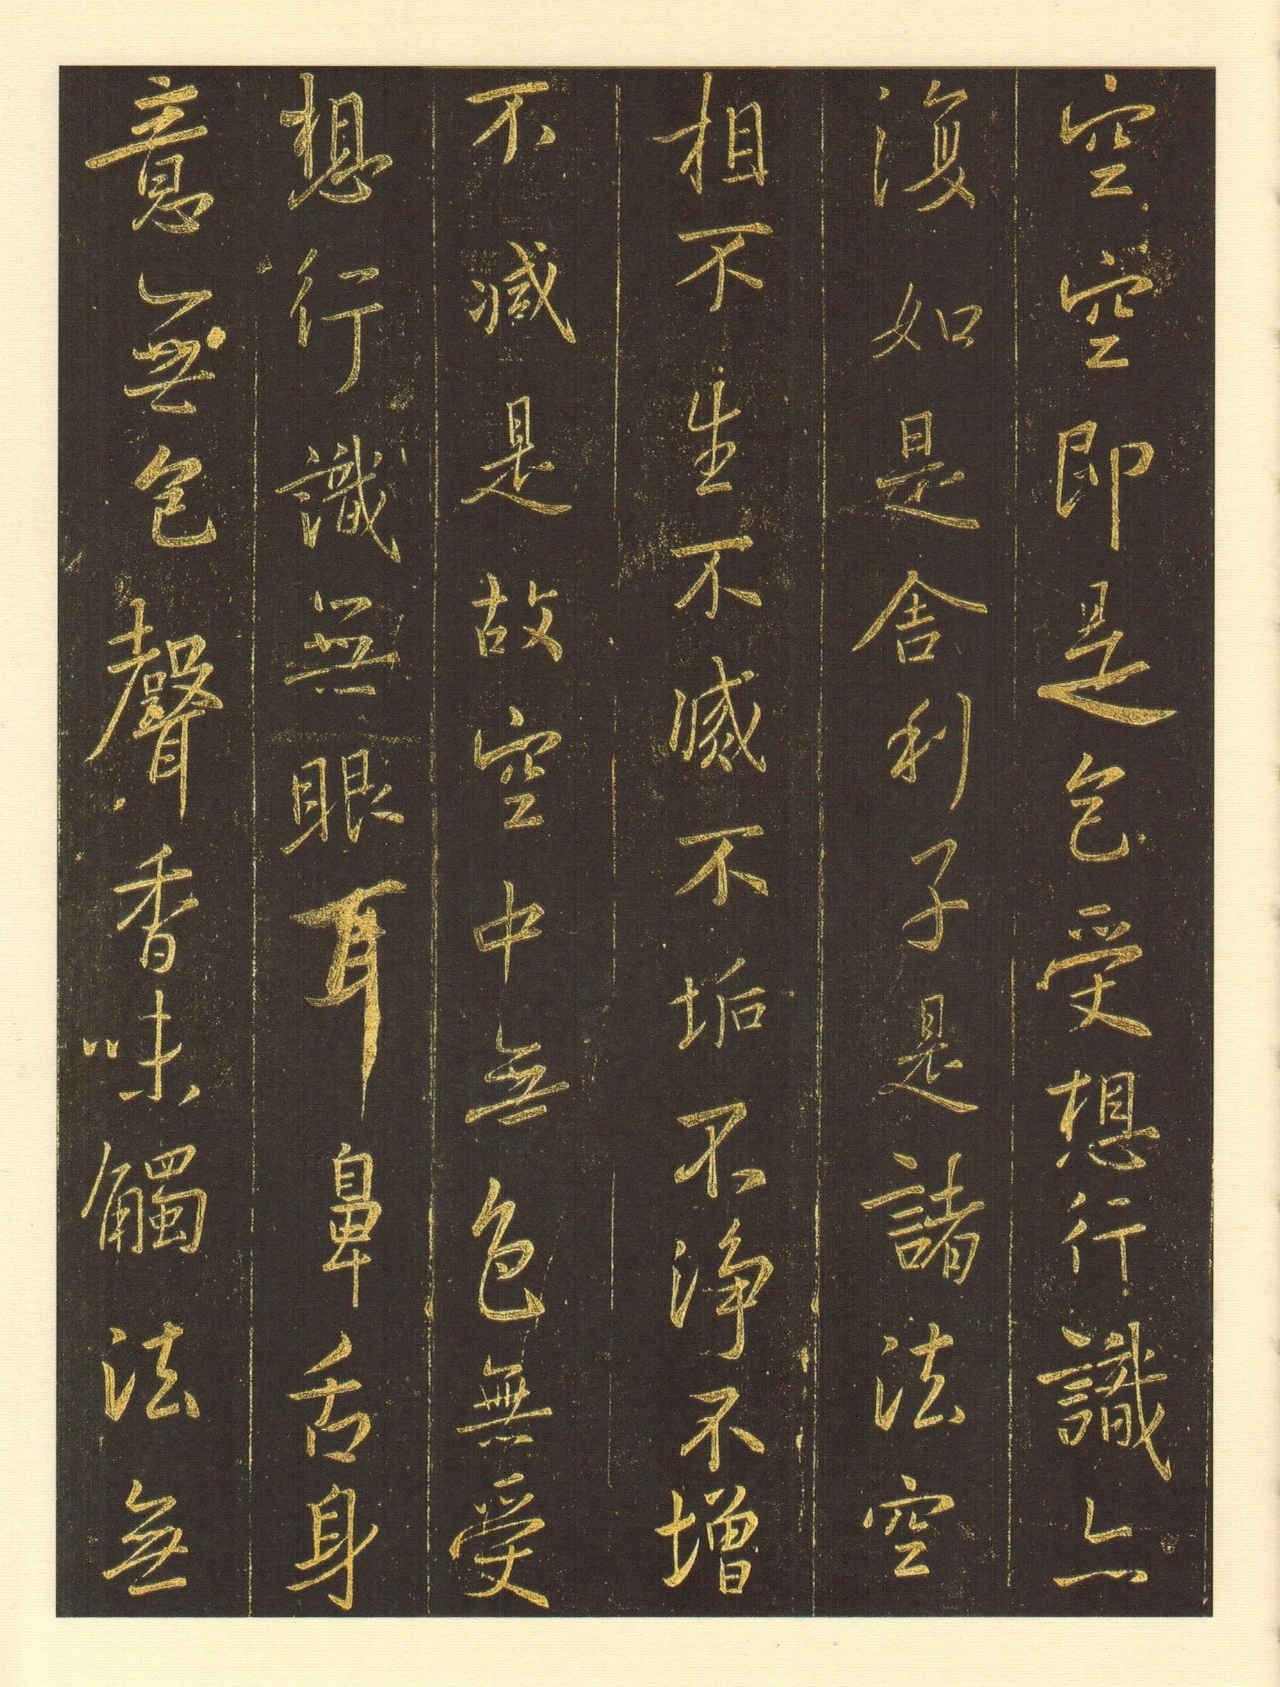 空空即是色受想行識亦
復如是舍利子是諸法空
相不生不滅不垢不淨不增
不減是故空中無色無受
想行識無眼耳鼻舌身
意無色聲香味觸法無